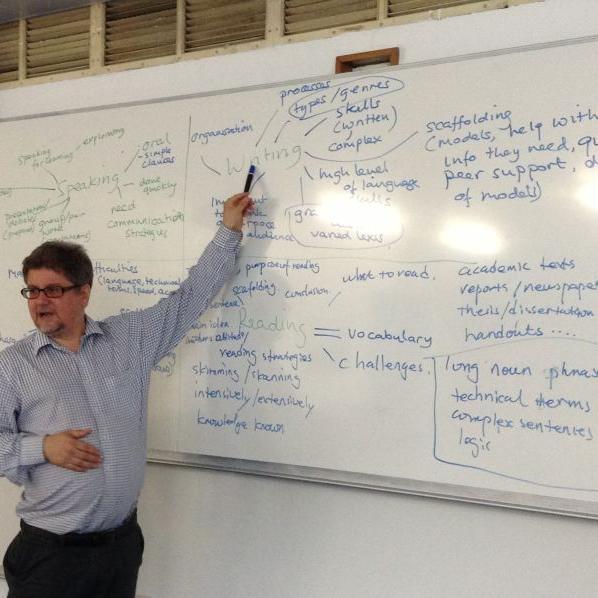 speaking
for learning
explaining
oral
- simple
clauses
Speaking
done
quickly
need
communication
strategies
group/pair
work
organisation
processes
types/genres
skills
(written)
complex
Writing
high level
of language
skills
varied lexis
audience
scaffolding
(models, help with
info they need,
peer support,
of models)
(language, technical
terms, speed,
purpose of reading
scaffolding.
conclusion.
what to read.
main idea
Reading
= vocabulary
challenges.
reading strategies
skimming/scanning
intensively/extensively
knowledge known
academic texts
reports/newspape
thesis/dissertation
handouts ....
long noun phras
technical terms
complex sentences
logic